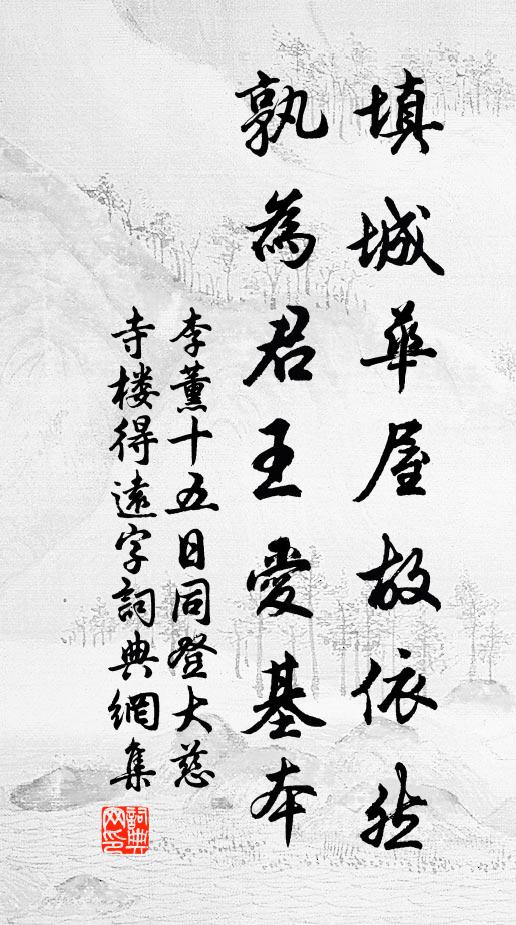 填城華屋故依然
孰為君王愛基本
李薰十五日同登大慈
寺楼得遠字詞典網集
詞典
网印